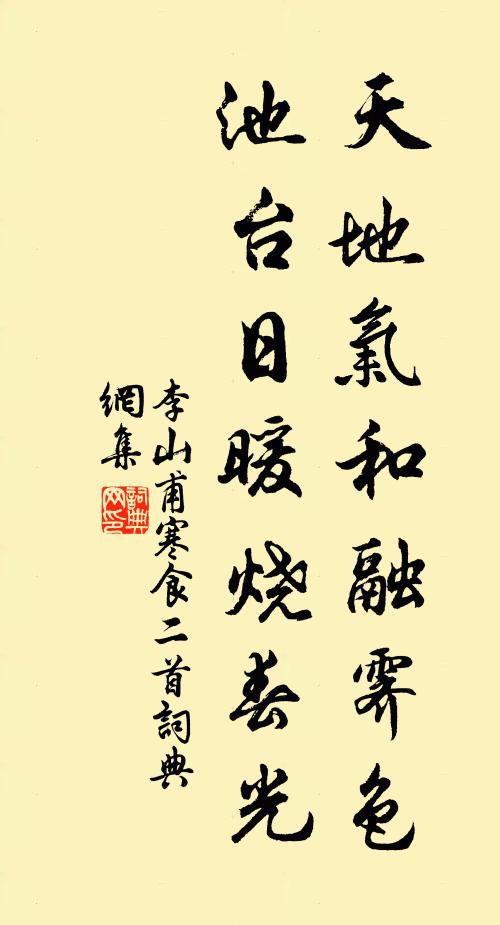 天地氣和融霽色
池台日暖烧春光
李山甫寒食二首詞典
網集
詞典
网印